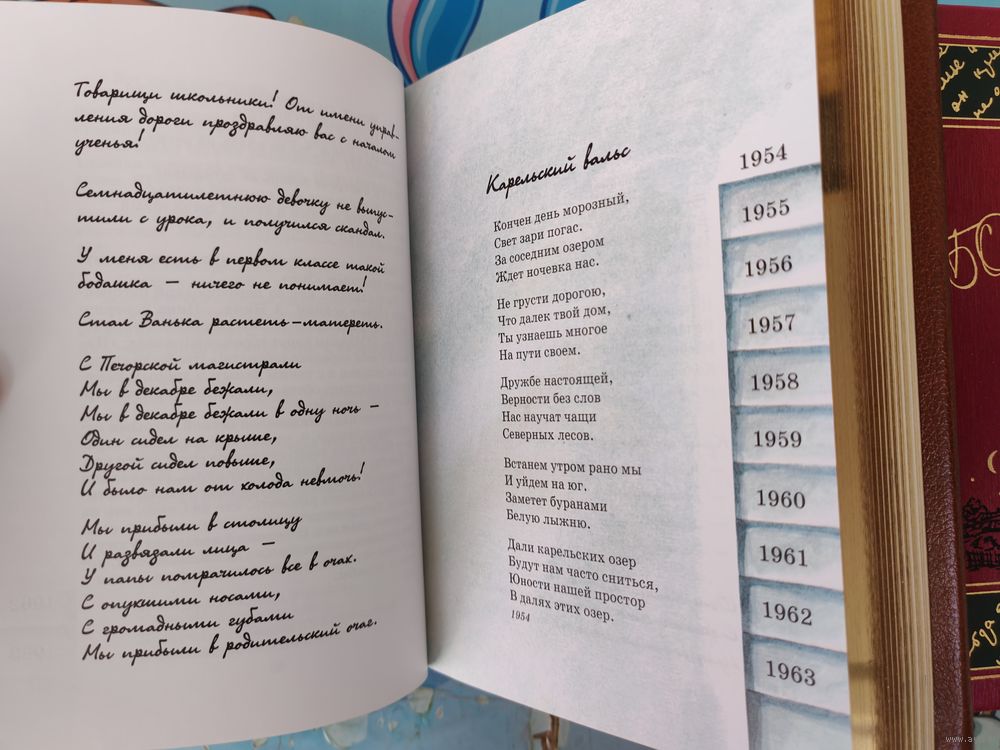 Товарищи школьники! От имени управ-
ления дороги проздравляю вас с началом
ученья!
Семнадцатилетнюю девочку не выпус-
тили с урока, и получился скандал.
У меня есть в первом классе такой
бодашка — ничего не понимает!
Стал Ванька растеть-матереть.
С Печорской магистрали
Мы в декабре бежали,
Мы в декабре бежали в одну ночь —
Один сидел на крыше,
Другой сидел повыше,
И было нам от холода невмочь!
Мы прибыли в столицу
И развязали лица —
У папы помрачилось все в очах.
С опухшими носами,
С громадными губами
Мы прибыли в родительский очаг.
Карельский вальс
Кончен день морозный,
Свет зари погас.
За соседним озером
Ждет ночевка нас.
Не грусти дорогою,
Что далек твой дом,
Ты узнаешь многое
На пути своем.
Дружбе настоящей,
Верности без слов
Нас научат чащи
Северных лесов.
Встанем утром рано мы
И уйдем на юг.
Заметет буранами
Белую лыжню.
Дали карельских озер
Будут нам часто сниться,
Юности нашей простор
В далях этих озер.
1954
1954
1955
1956
1957
1958
1959
1960
1961
1962
1963